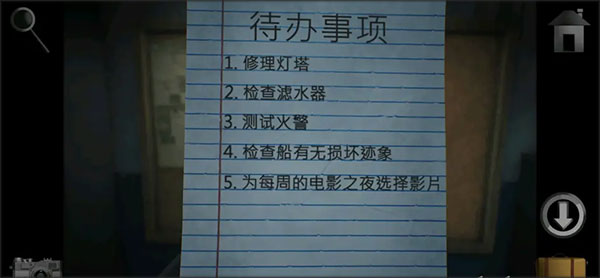 待办事项
1. 修理灯塔
2. 检查滤水器
3. 测试火警
4. 检查船有无损坏迹象
5. 为每周的电影之夜选择影片